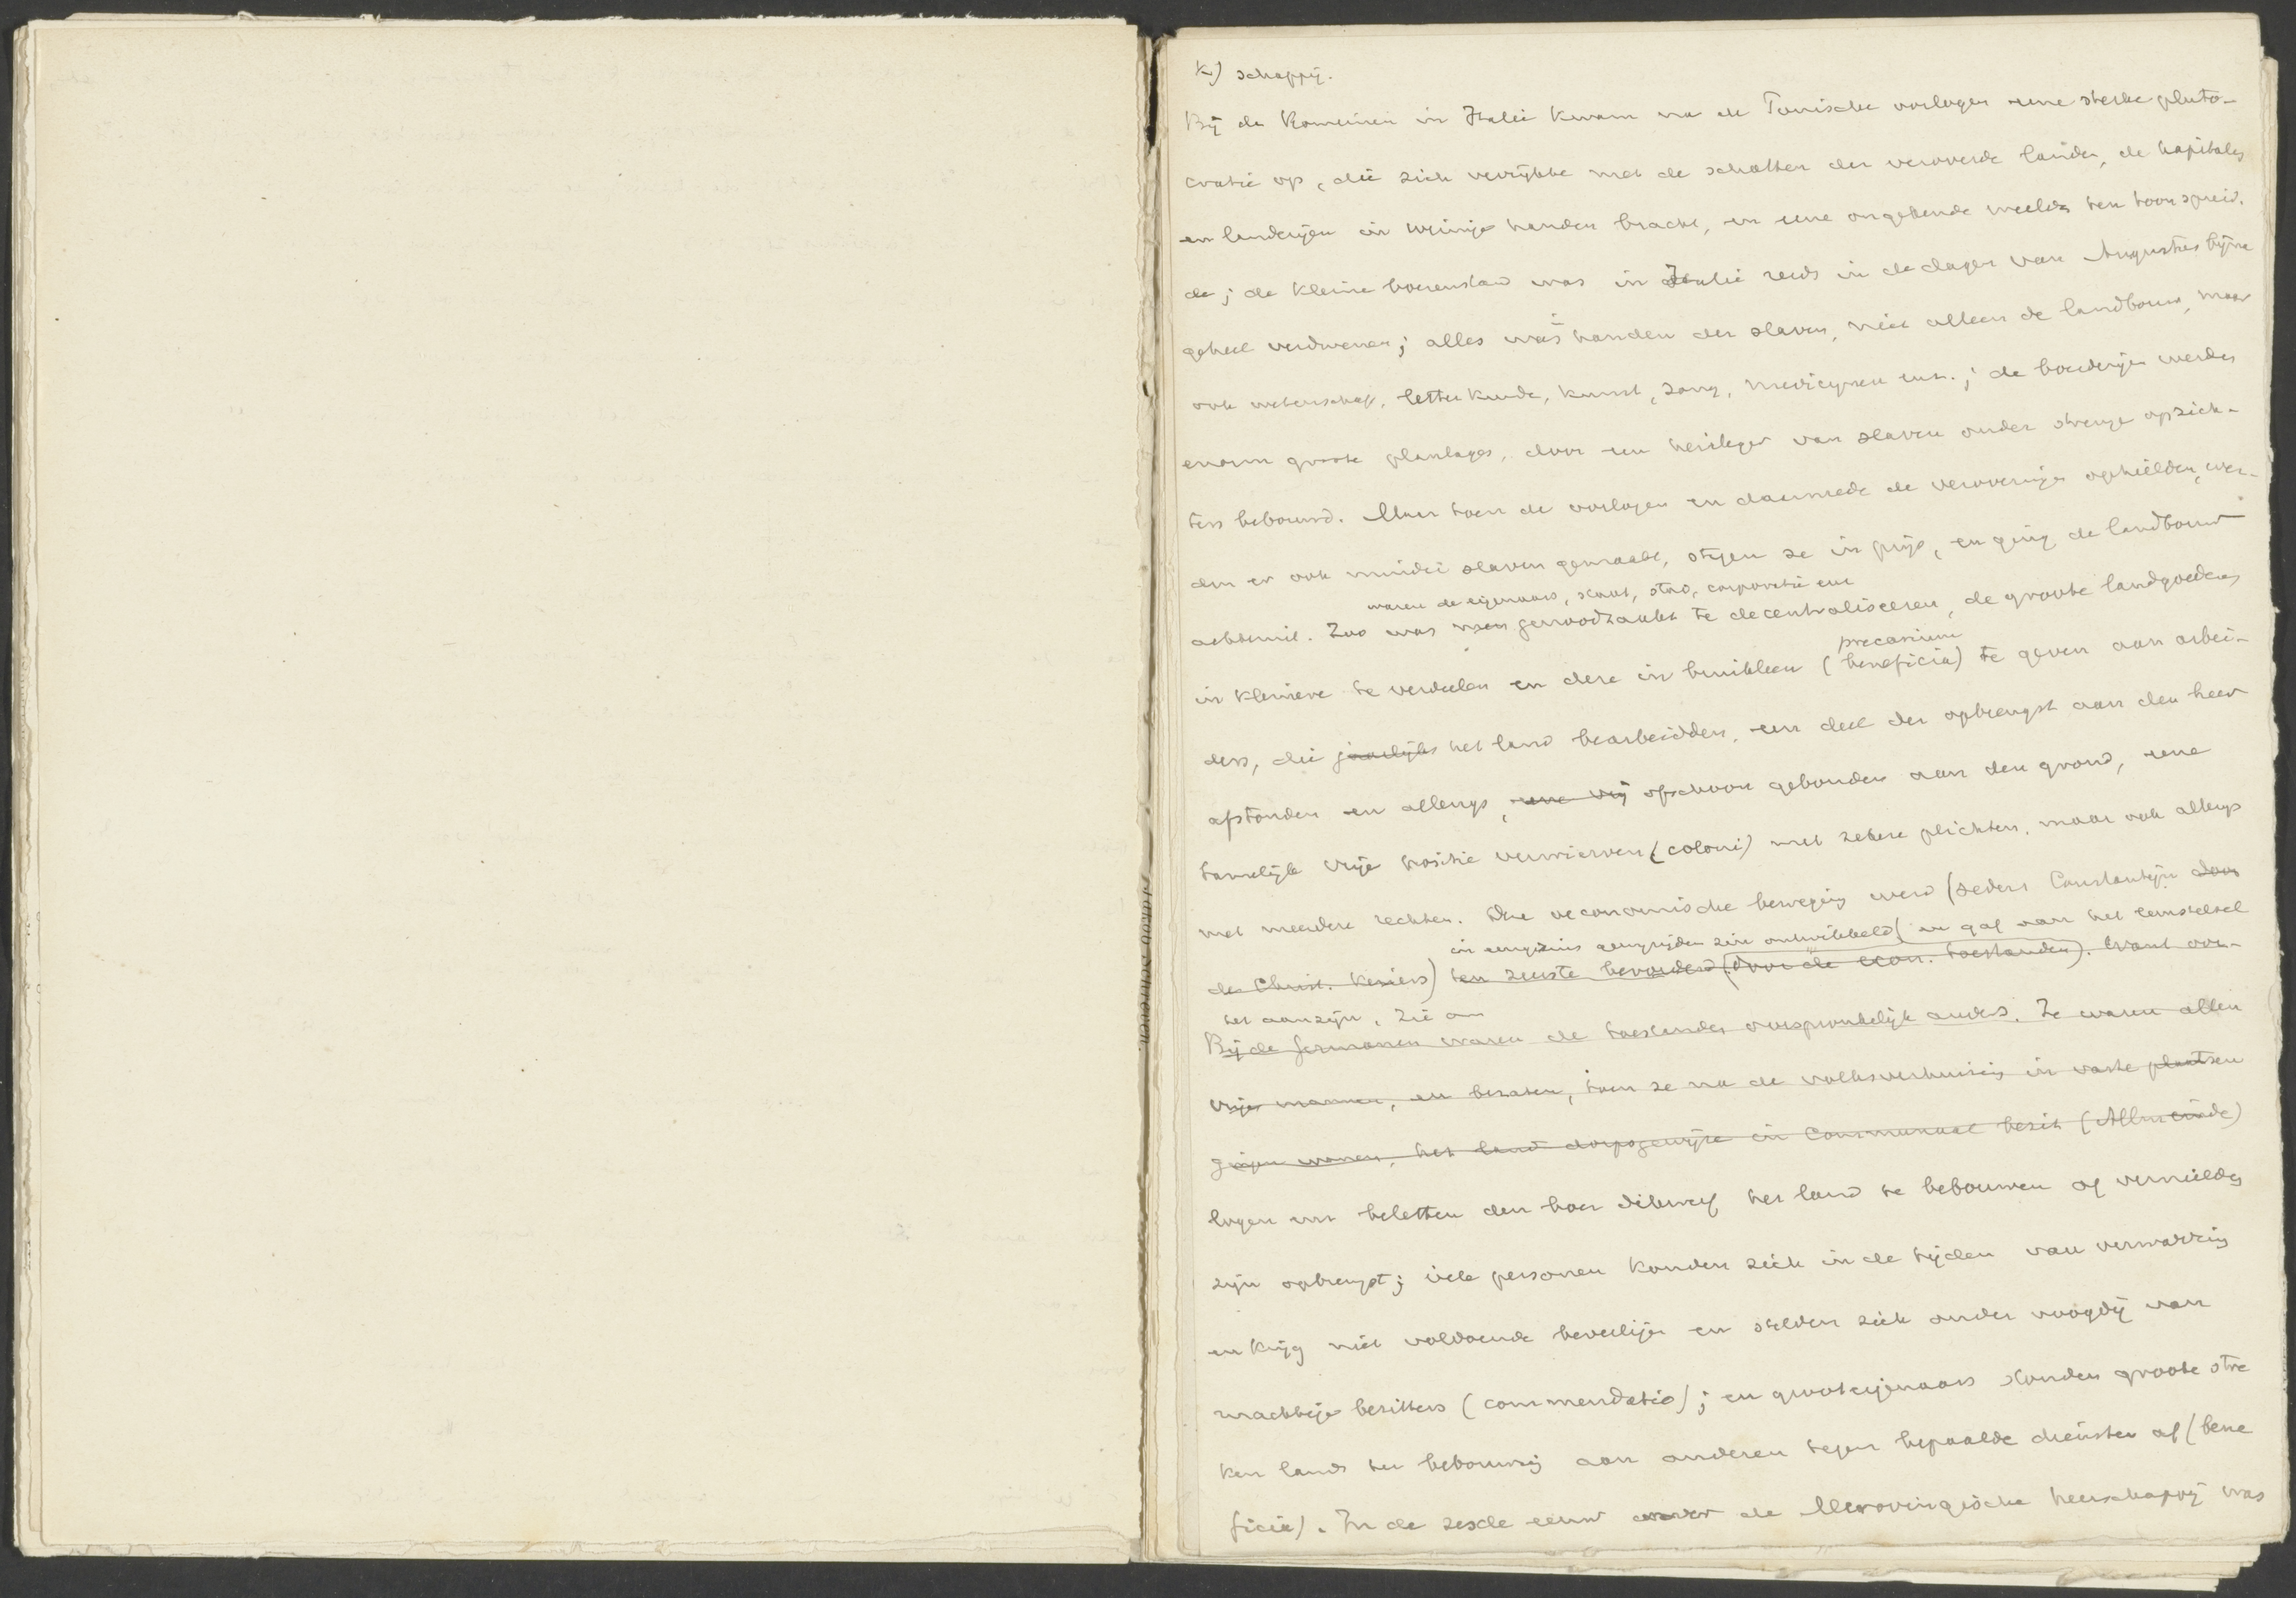 k) schappij.
Bij de Romeinen in Italië kwam na de Punische oorlogen eene sterke pluto-
cratie op, die zich verrijkte met de schatten der veroverde landen, de kapitalen
en landerijen in weinige handen bracht, en eene ongekende weelde ten toon spreid-
de; de kleine boerenstand was in Italië reeds in de dagen van Augustus bijna
geheel verdwenen; alles was in handen der slaven, niet alleen de landbouw, maar
ook wetenschap, letterkunde, kunst, zang, medicijnen enz.; de boerderijen werden
enorm groote plantages, door een heirleger van slaven onder strenge opzich-
ters bebouwd. Maar toen de oorlogen en daarmede de veroveringen ophielden, wer-
den er ook minder slaven gemaakt, stegen ze in prijs, en ging de landbouw
achteruit. Zoo was men genoodzaakt te decentraliseeren, de groote landgoederen
waren de eigenaars, staat, stad, corporatie enz
in kleinere te verdeelen en deze in bruikleen (beneficia) te geven aan arbei-
precarium
ders, die jaarlijks het land bearbeidden, een deel der opbrengst aan den heer
afstonden en allengs, eene vrij ofschoon gebonden aan den grond, eene
tamelijk vrije positie verwierven (coloni) met zekere plichten, maar ook allengs
met meerdere rechten. Die oeconomische beweging werd (sedert Constantijn door
de Christ. Keizers) ten zeerste bevorderd (door de econ. toestanden). Want oor-
in eenigszins gewijzigden zin ontwikkeld en gaf aan het leenstelsel
het aanzijn. Zie
Bij de Germanen waren de toestanden oorspronkelijk anders. Ze waren allen
vrije mannen, en bezaten, toen ze na de volksverhuizing in vaste plaatsen
gingen wonen, het land dorpsgewijze in communaal bezit (Allmeinde)
logen enz beletten den boer dikwerf het land te bebouwen of vernielden
zijn opbrengst; vele personen konden zich in de tijden van verwarring
en krijg niet voldoende beveiligen en stelden zich onder voogdij van
machtige bezitters (commendatio); en grooteigenaars stonden groote stre
ken lands ter bebouwing aan anderen tegen bepaalde diensten af (bene
ficia). In de zesde eeuw onder de Merovingische heerschappij was